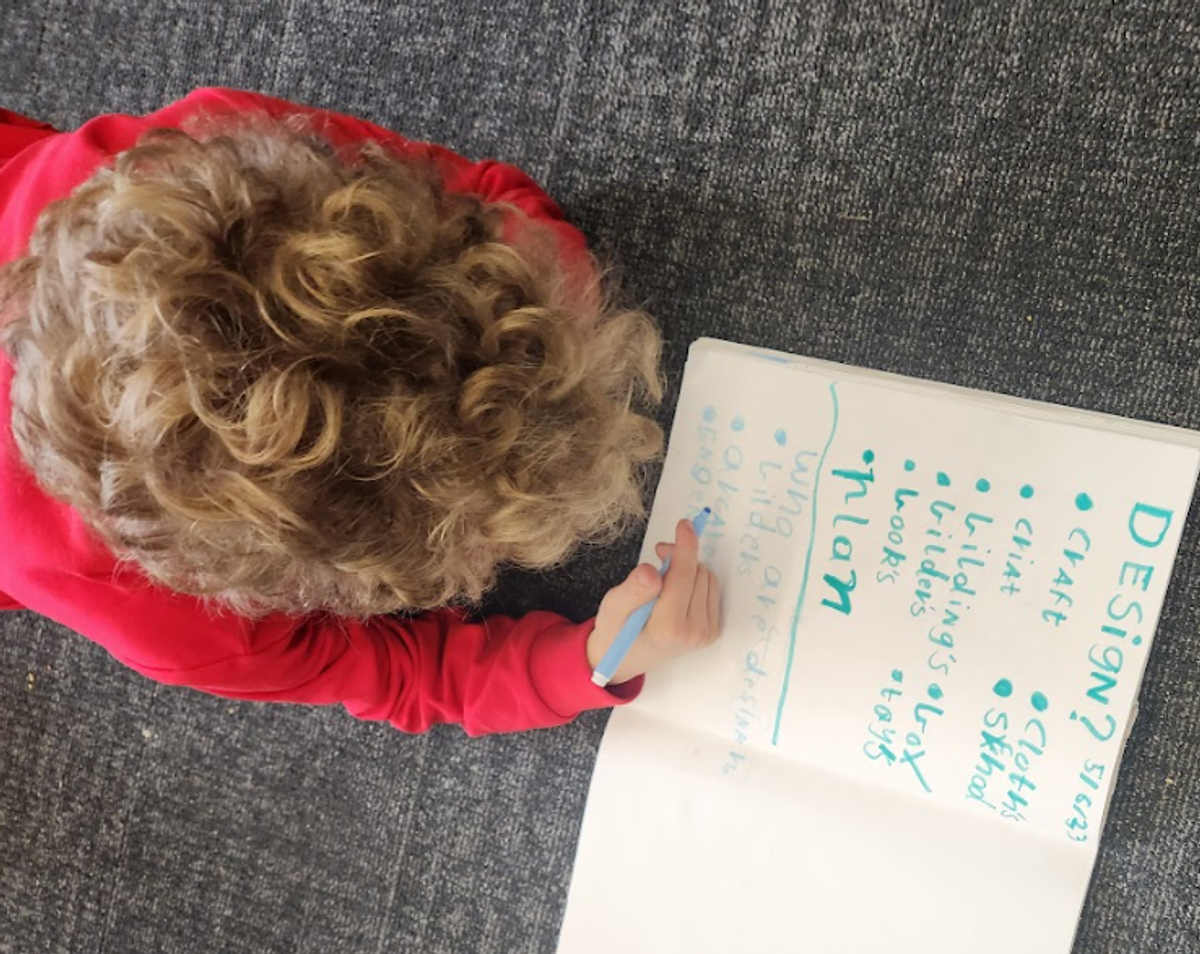 DESiGN? 5/6/23
• CRAft • Cloth's
• CHiAt • SKhool
• bilding's • brox
• bilder's • toys
• book's
• plan
why are desinin
• bilders